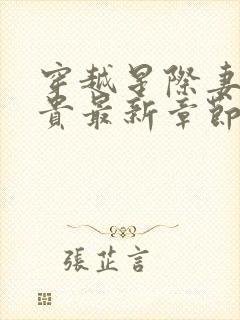 穿越星際妻
貴最新章節
張芷言